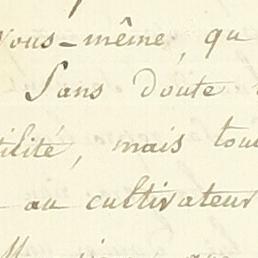 vous-même, qu
Sans doute
tilité, mais tou
au cultivateur